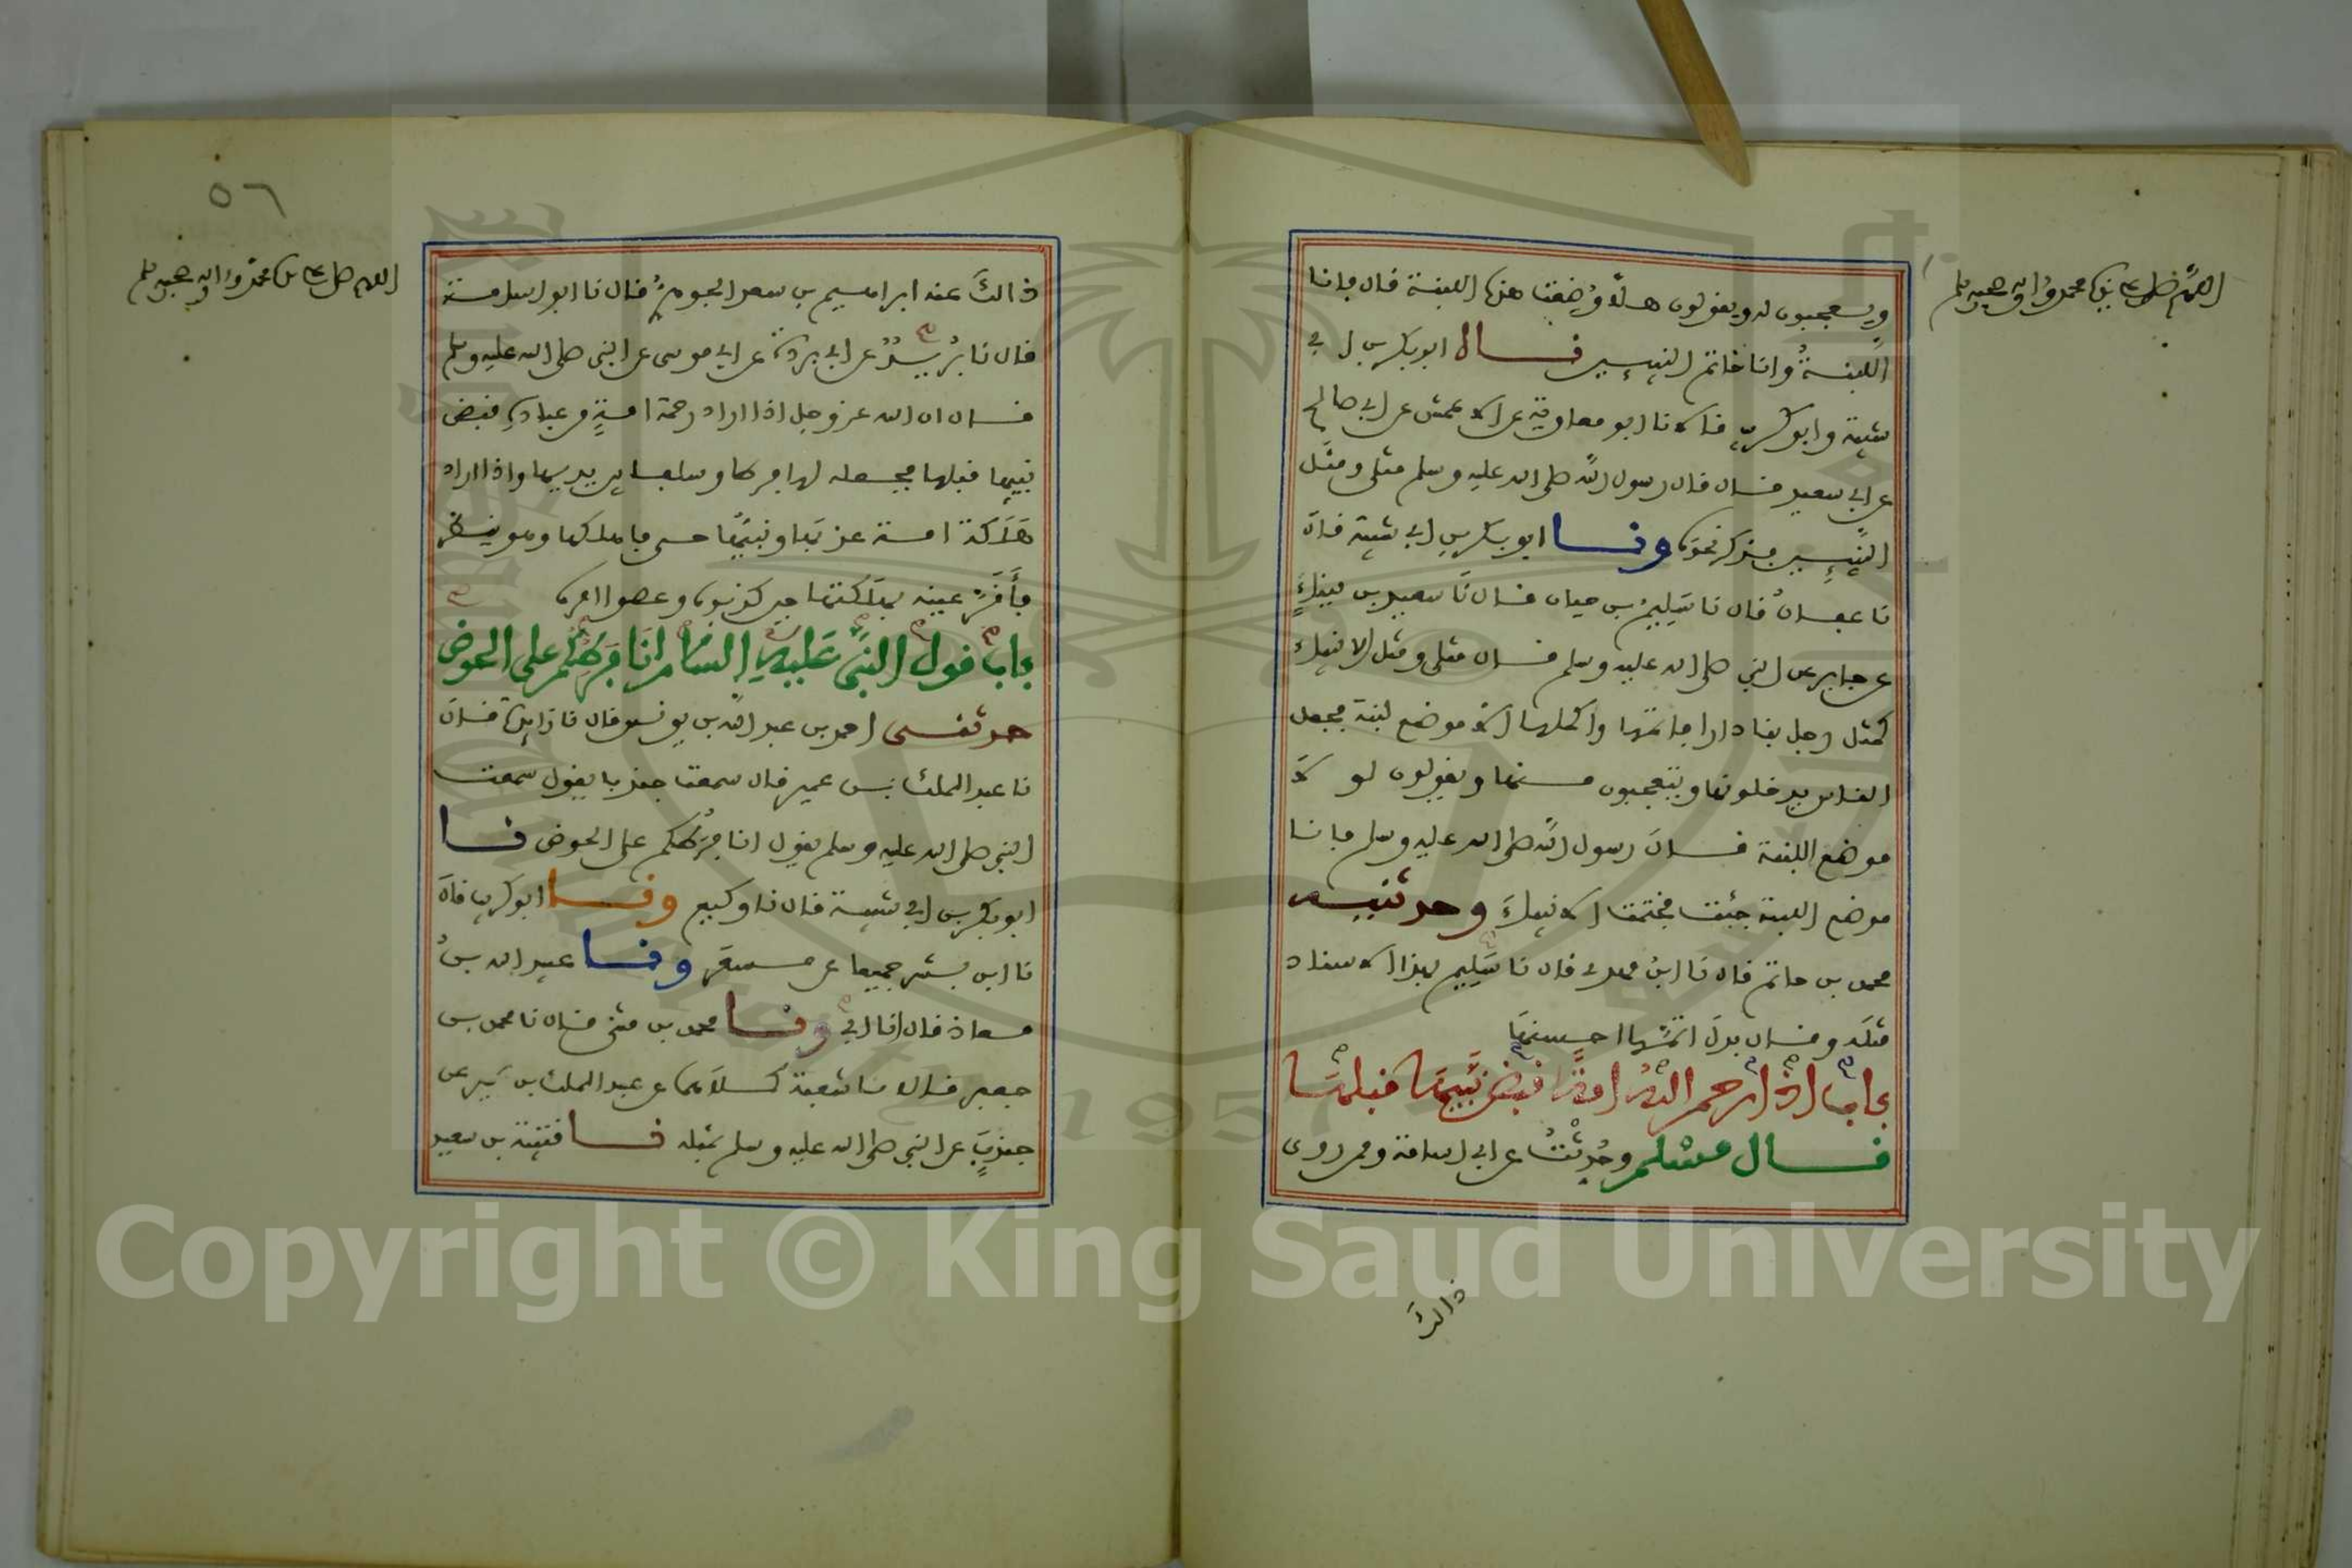 اللهم صل على نبيك محمد واله وصحبه وسلم
ويعجبون له ويقولون هلا وضعت هذه اللبنة قال فانا
اللبنة وانا خاتم النبيين قال ابو بكر بن ابي
شيبة وابو كريب قالا نا ابو معاوية عن الاعمش عن ابي صالح
عن ابي سعيد قال قال رسول الله صلى الله عليه وسلم مثلي ومثل
النبيين فذكر نحوه ونا ابو بكر بن ابي شيبة قال
نا عفان قال نا سليم بن حيان قال نا سعيد بن ميناء
عن جابر عن النبي صلى الله عليه وسلم قال مثلي ومثل الانبياء
كمثل رجل بنا دارا فاتمها واكملها الا موضع لبنة فجعل
الناس يدخلونها ويتعجبون منها ويقولون لو لا
موضع اللبنة قال رسول الله صلى الله عليه وسلم فانا
موضع اللبنة جئت فختمت الانبياء وحدثنيه
محمد بن حاتم قال نا ابن مهدي قال نا سليم بهذا الاسناد
مثله وقال بدل اتمها احسنها
باب اذا رحم الله امة قبض نبيها قبلها
قال مسلم وحدثت عن ابي اسامة وممن روى
ذالك
٥٦
اللهم صل على محمد واله وصحبه وسلم
ذالك عنه ابراهيم بن سعد الجوهري قال نا ابو اسامة
قال نا بريد عن ابي بردة عن ابي موسى عن النبي صلى الله عليه وسلم
قال ان الله عز وجل اذا اراد رحمة امة من عباده قبض
نبيها قبلها فجعله لها فرطا وسلفا بين يديها واذا اراد
هلاكة امة عذبها ونبيها حي فاهلكها وهو ينظر
فأقر عينه بهلاكتها حين كذبوه وعصوا امره
باب قول النبي عليه السلام انا فرطكم على الحوض
حدثني احمد بن عبد الله بن يونس قال نا زائدة قال
نا عبد الملك بن عمير قال سمعت جندبا يقول سمعت
النبي صلى الله عليه وسلم يقول انا فرطكم على الحوض نا
ابو بكر بن ابي شيبة قال نا وكيع ونا ابو كريب قال
نا ابن بشر جميعا عن مسعر ونا عبيد الله بن
معاذ قال انا ابي ونا محمد بن مثنى قال نا محمد بن
جعفر قالا نا شعبة كلاهما عن عبد الملك بن عمير عن
جندب عن النبي صلى الله عليه وسلم بمثله نا قتيبة بن سعيد
Copyright © King Saud University
1957